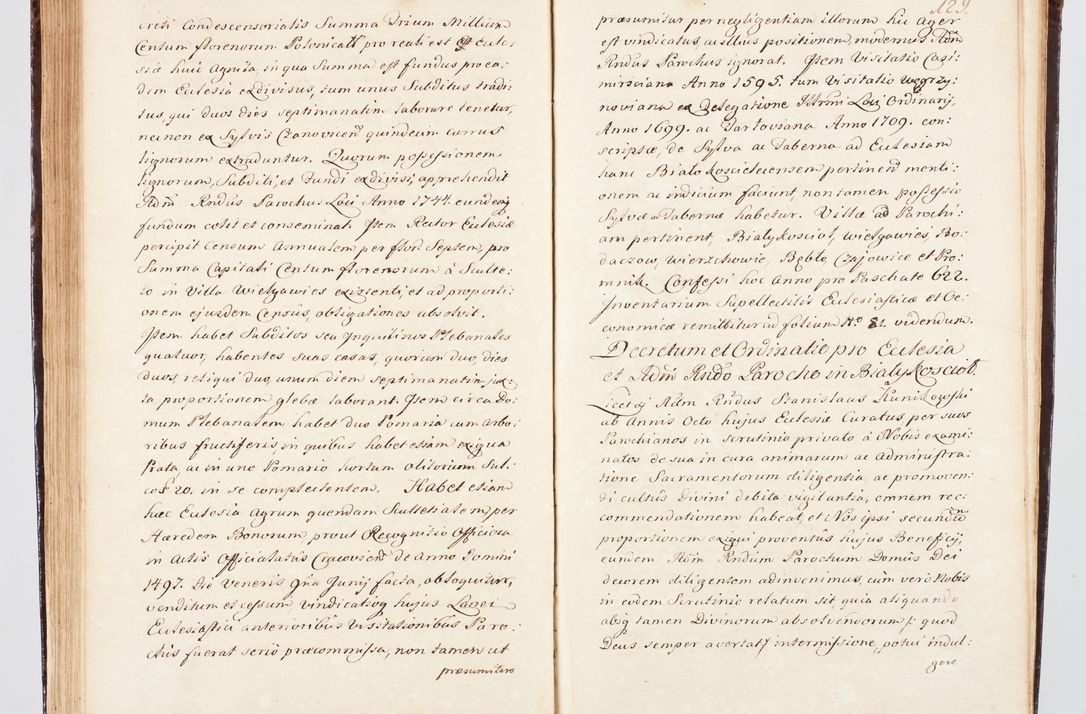 creti Condescensorialis Summa Trium Millium
Centum florenorum Polonicalt pro reali est Eccle:
siæ huic Agnita, in qua Summa est fundus pro ea:
dem Ecclesia exdivisus, tum unus Subditus tradi:
tus, qui duos dies septimanatim laborare tenetur,
nec non ex Sylvis Czanovicen quindecim currus
lignorum extraduntur. Quorum possessionem
lignorum, Subditi, et Fundi exdivisi, apprehendit
Adm Rndus Parochus Loci Anno 1744. eundemq
fundum colit et conseminat. Item Rector Ecclesiæ
percipit Censum Annualem per flor Septem, pro
Summa Capitali Centum florenorum à Sculte:
to in Villa Wielgawies existenti, et ad proporti:
onem ejusdem Censûs, obligationes absolvit.
Item habet Subditos seu Inquilinos Plebanales
quatuor, habentes suas casas, quorum duo, dies
duos, reliqui duo, unum diem septimanatim, jux:
ta proportionem glebæ laborant. Item circa Do:
mum Plebanalem habet duo Pomaria cum Arbo:
ribus fructiferis, in quibus habet etiam exigua
Prata, ac in uno Pomario hortum olitorium Sul:
cos 20. in se complectentem. Habet etiam
hæc Ecclesia Agrum quendam Scultetialem, per
Hæredem Bonorum, prout Recognitio Officiosa
in Actis Officialatûs Cracovien de Anno Domini
1497. Die Veneris 9na Junij facta, obloquitur,
venditum et cessum, vindicatioq hujus Lanei
Ecclesiastici anterioribus Visitationibus Paro:
chis fuerat serio præcommissa, non tamen ut
præsumitur
129.
præsumitur per negligentiam illorum hic Ager
est vindicatus, ac illius positionem, modernus Adm
Rndus Parochus ignorat. Item Visitatio Casi:
mirsciana Anno 1595. tum Visitatio Węgrzy:
noviana ex Delegatione Illrmi Loci Ordinarij,
Anno 1699. ac Tartoviana Anno 1709. con:
scriptæ, de Sylva ac Taberna ad Ecclesiam
hanc Białokoscielecensem pertinen menti:
onem ac indicium faciunt, non tamen possessio
Sylvæ ac Tabernæ habetur. Villæ ad Parochi:
am pertinent, Białykosciol, Wielgawies, Bo:
daczow, Wierzchowie, Bębło, Czajowice et Pro:
mnik. Confessi hoc Anno pro Paschate 622.
Inventarium Supellectilis Ecclesiasticæ et Oe:
conomicæ remittitur ad folium No 81. videndum.
Decretum et Ordinatio pro Ecclesia
et Adm Rndo Parocho in Białykosciol.
Licet Adm Rndus Stanislaus Kunikowski
ab Annis Octo hujus Ecclesiæ Curatus, per suos
Parochianos in Scrutinio privato à Nobis exami:
natos de sua in cura animarum ac Administra:
tione Sacramentorum diligentia, ac promoven:
di cultûs Divini debita vigilantia, omnem rec:
commendationem habeat, et Nos ipsi secundum
proportionem exigui proventus hujus Beneficij,
eundem Adm Rndum Parochum Domûs Dei
decorem diligentem adinvenimus, cùm verò Nobis
in eodem Scrutinio relatum sit, quia aliquando
absq tamen Divinorum absolvenorum /: quod
Deus semper avertat :/ intermissione, potui indul:
gere